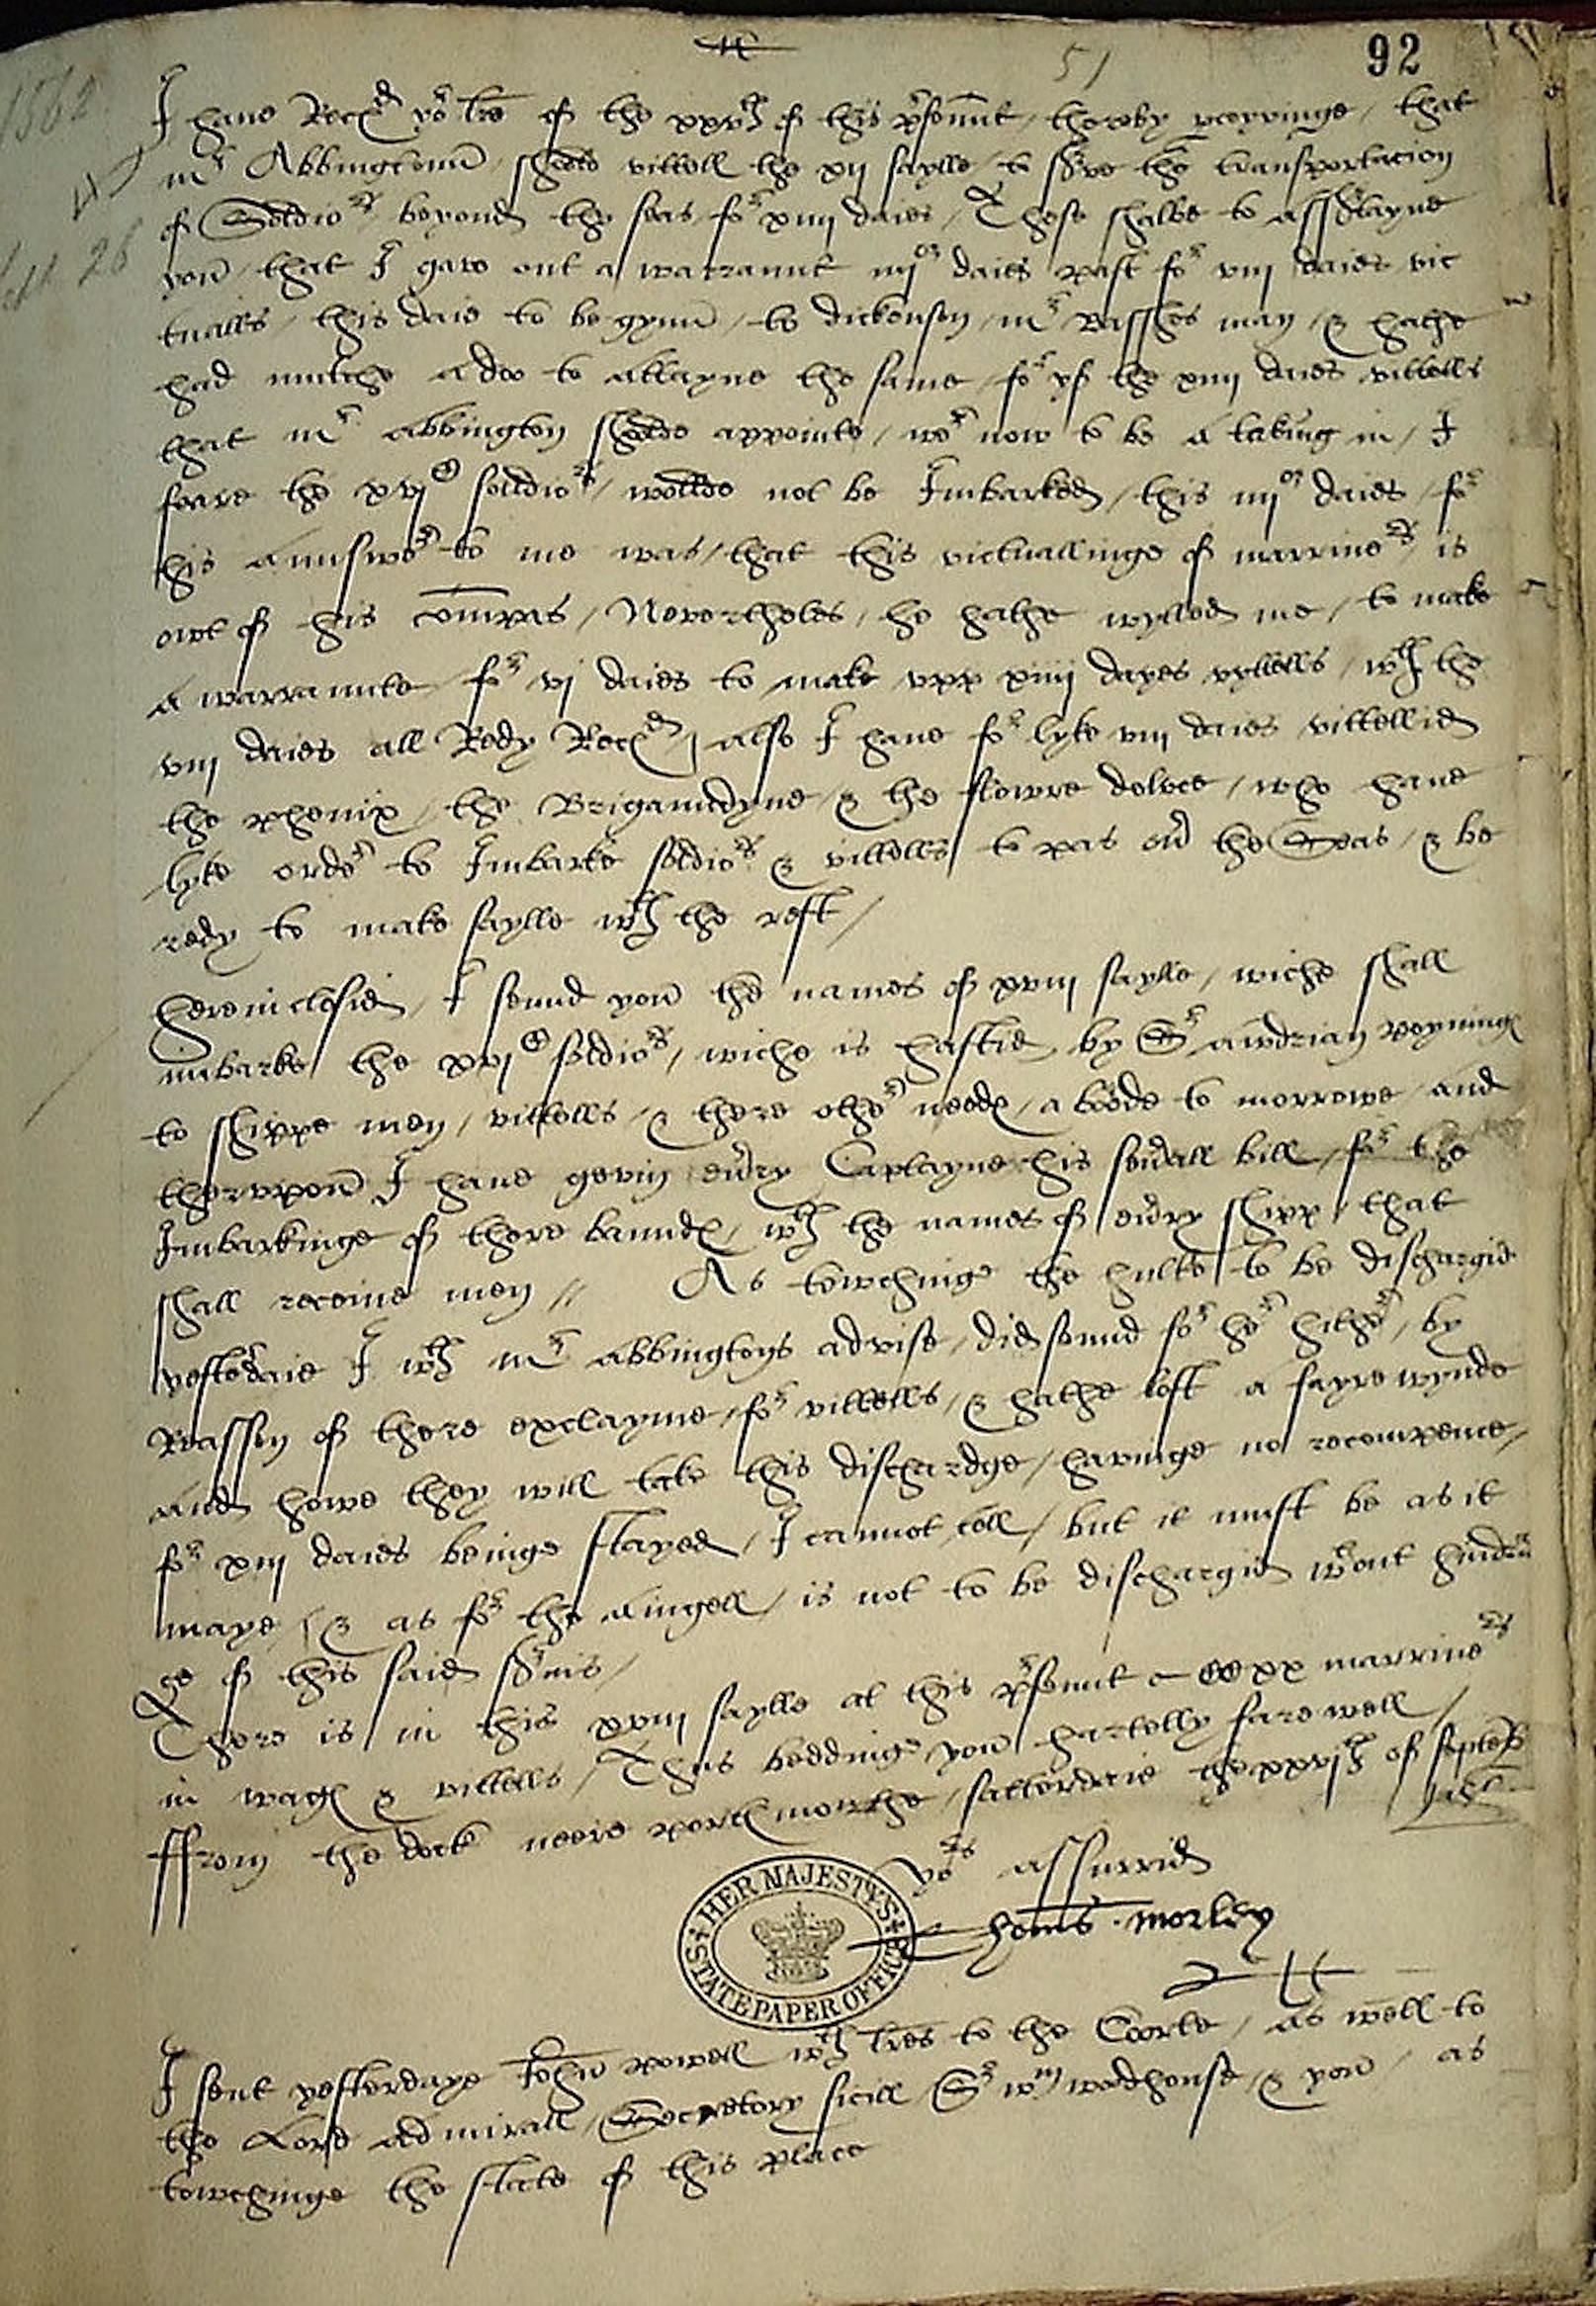 92
51
1562
I haue Rec^d yo^r lre of the xxv^th of this p^rsennt, therby p̱cevinge, that
m^r Abbingtonn̄, sholde vittell the xij saylle, to s^rve the transportacion
of Soldio^rs beyond the seas fo^r xiiij daies, These shalbe to assartayne
youe, that I gave out a warrannt iiij^or daies past fo^r viij daies vic
tualls, this daie to begynn̄, to dickenson m^r Basshes man, & hathe
had mutche adoo to attayne the same, fo^r yf the xiiij daies vittells
that m^r abbington sholde appointe, we^r now to be a taking in, I
feare the xvj^C soldio^rs, wollde not be Imbarked, this iiij^or daies, fo^r
his annswe^r to me was, that this victuallinge of marrine^rs is
owt of his com̄pas, Nevertheles, he hathe wylled me, to make
a warrannte fo^r vj daies to make vpp xiiij dayes vyttells, w^th the
viij daies all Redy Rec^d, also I haue fo^r lyke viij daies vittellid
the phenix, the Brigamdyne & the flowre deluce, who haue
lyke orde^r to Imbarke soldio^rs & vittelles to pas ou^r the Seas, & be
redy to make saylle w^th the rest,
Hereinclosid, I sennd youe the names of xviij saylle, wiche shall
imbarke the xvj^C soldio^rs, wiche is hastid by S^r awdrian poyning
to shippe men, vittells, & there othe^r needs, aborde to morrowe and
thervpon̄ I haue gevin eu^ry Captayne his seu^rall bill, fo^r the
Imbarkinge of there bannds, w^th the names of eu^ry shipp that
shall receive men // As towchinge the hulke to be dischargid
yesterdaie I w^th m^r abbingtons advise, did sennd fo^r he^r hithe^r, by
Reasson of there exclayme, fo^r vittells, & hathe lost a fayre wynde
and howe they will take this dischardge, havinge no recompence,
fo^r xiij daies beinge stayed, I cannot tell, but it must be as it
maye, & as fo^r the Aingell, is not to be dischargid w^thout hindra
ce of this said s^rvis,
There is in this xviij saylle at this p^rsennt CCxx marrine^rs
in wags & vittells, Thus beddinge youe hartelly fare well,
ffrom the dock neere portsmouthe, satterdaie the xxvj^th of Septeb^r
1562
yo^rs assurrid
Thoms · morley
HER MAJESTY'S STATE PAPER OFFICE
I sent yesterdaye John̄ powell w^th lres to the Coorte, as well to
the Lord admirall, Secretory sicill, S^r w^m wodhouse, & youe, as
towchinge the state of this place